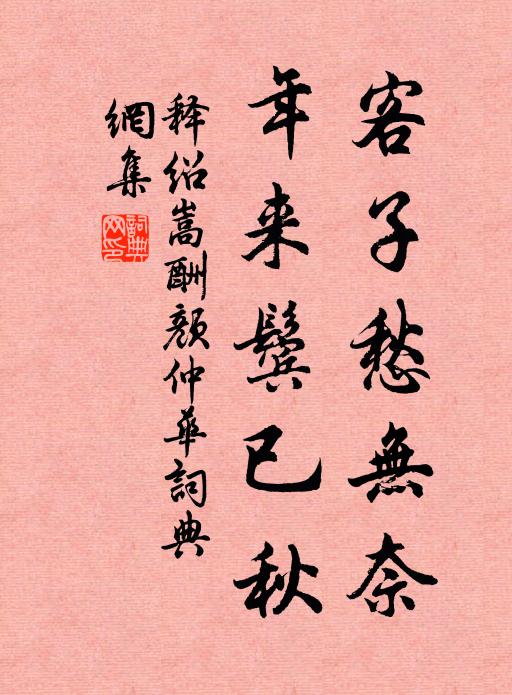 客子愁無奈
年来鬓已秋
释绍嵩酬颜仲華詞典
網集
詞典网印